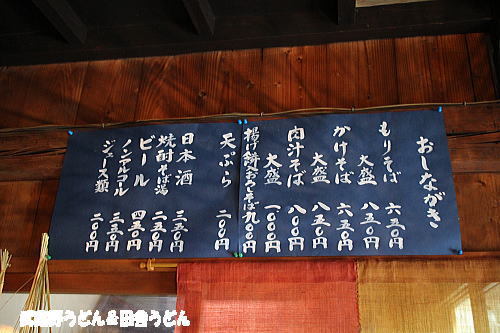 おしながき
もりそば 六五〇円
大盛 八五〇円
かけそば 六五円
大盛 八五〇円
肉汁そば 八〇〇円
大盛 一〇〇〇円
揚げ餅おろしそば 九〇〇円
天ぷら 二〇〇円
日本酒 三五〇円
焼酎そば湯 二五〇円
ビール 四五〇円
ノンアルコール 三五〇円
ジュース類 二〇〇円
武蔵野うどん&田舎うどん